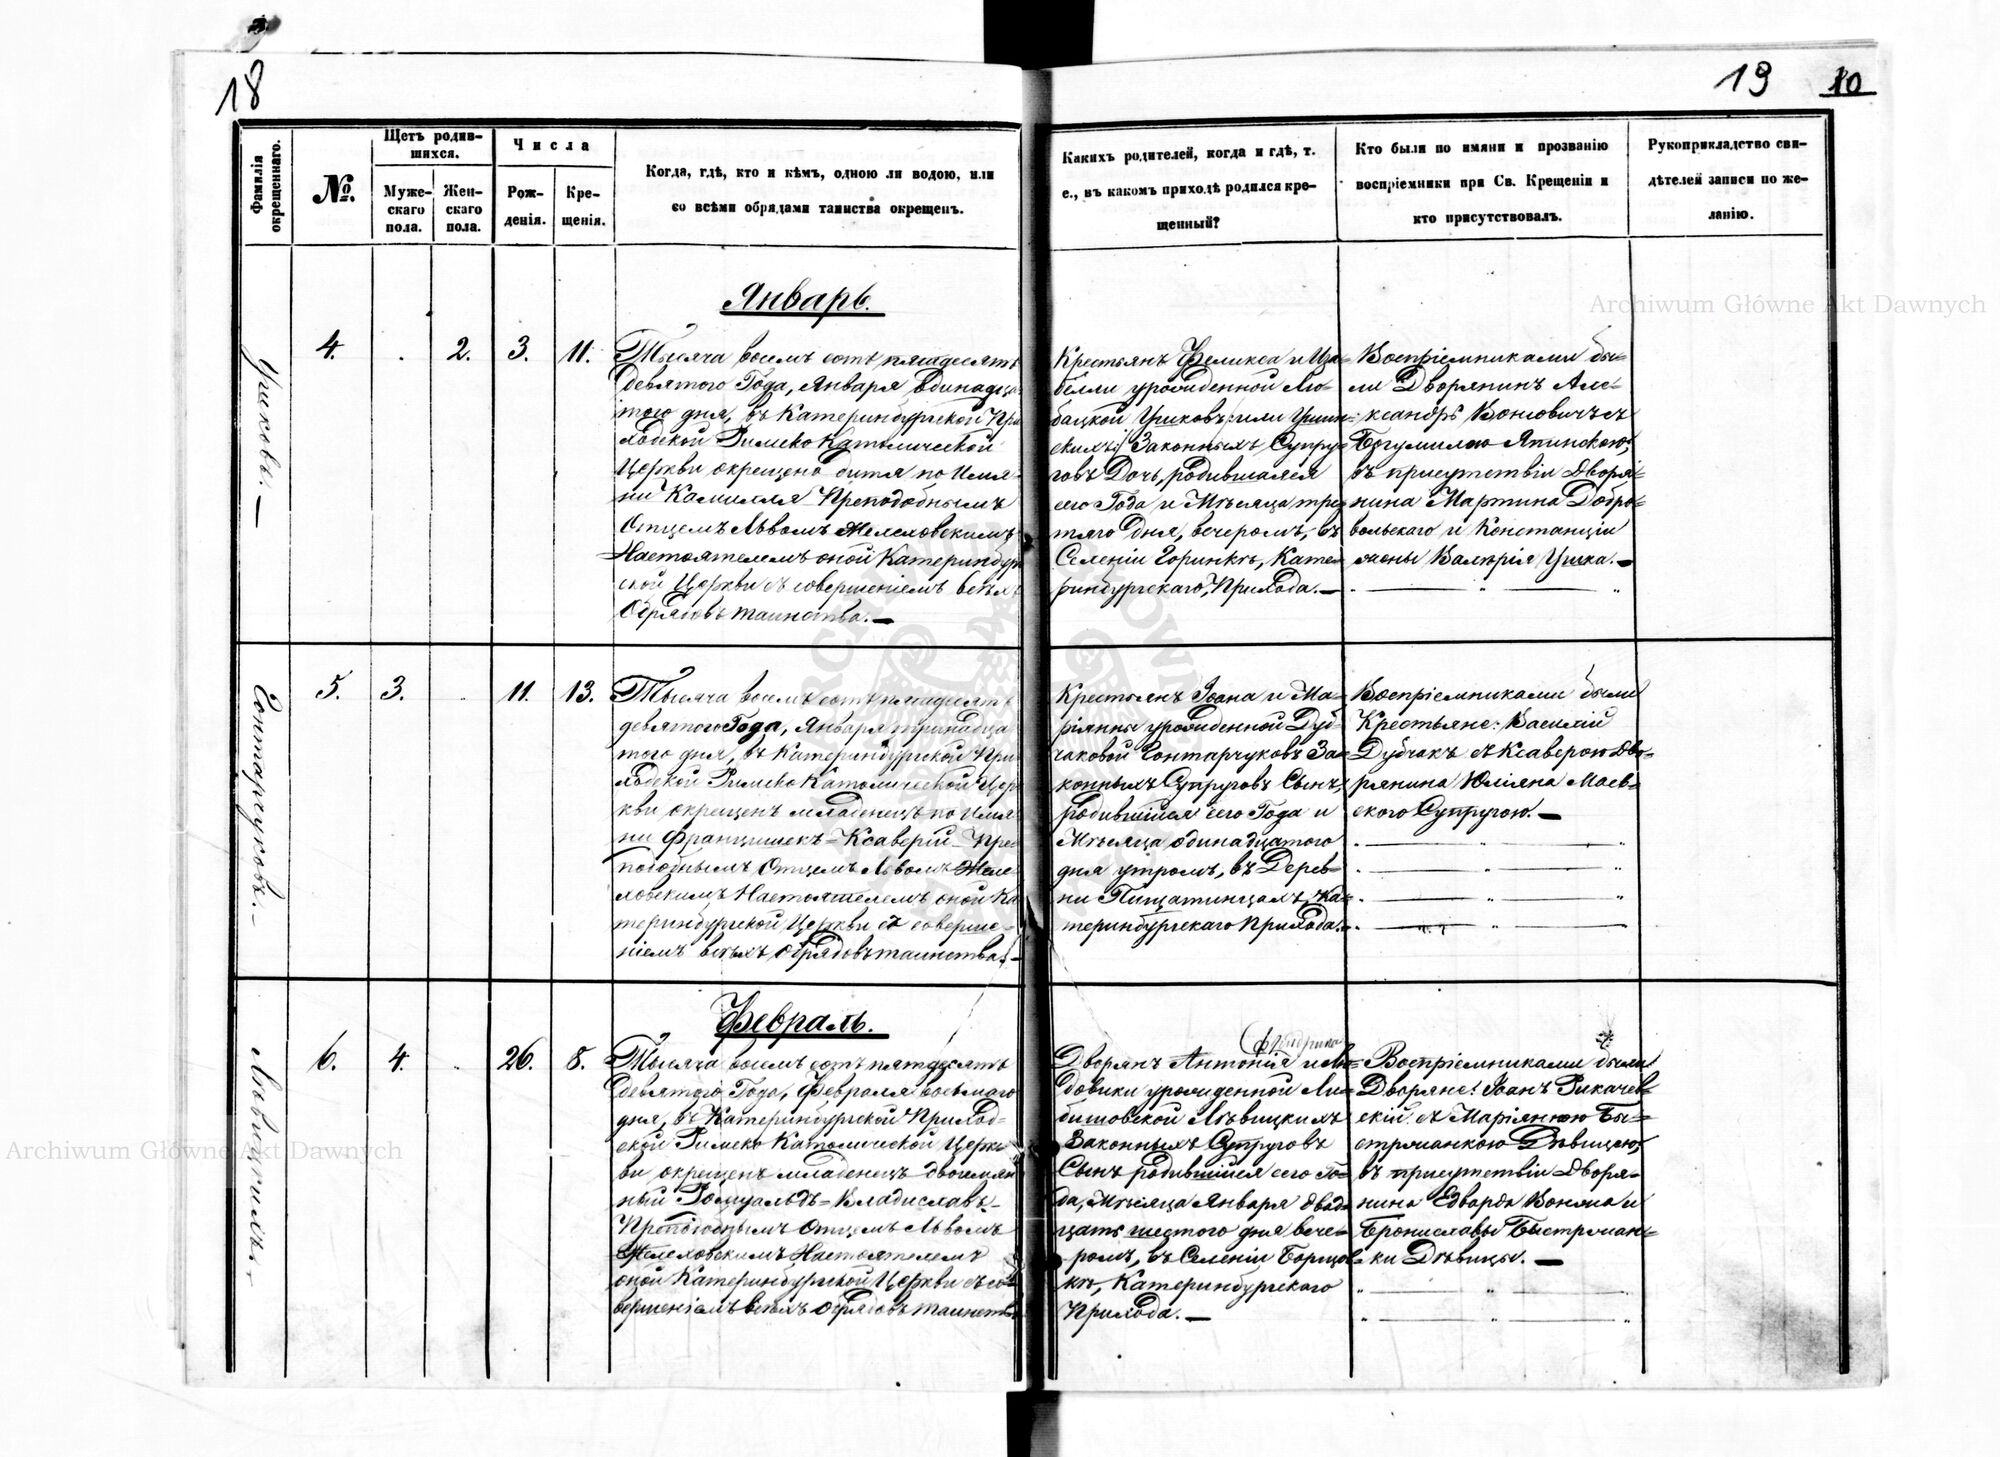 18
19 10
Фамилія окрещеннаго.
№.
Щетъ родив-
шихся.
Муже-
скаго
пола.
Жен-
скаго
пола.
Числа
Рож-
денія.
Кре-
щенія.
Когда, гдѣ, кто и кѣмъ, одною ли водою, или
со всѣми обрядами таинства окрещенъ.
Какихъ родителей, когда и гдѣ, т.
е., въ какомъ приходѣ родился кре-
щенный?
Кто были по имяни и прозванію
воспріемники при Св. Крещеніи и
кто присутствовалъ.
Рукоприкладство сви-
дѣтелей записи по же-
ланію.
Archiwum Główne Akt Dawnych
Январь.
4. . 2. 3. 11.
Тысяча восемъ сотъ пятьдесятъ
девятого Года, Января одинадца
того дня, въ Катеринбургской При
ходской Римско Католической
Церкви окрещено дитя по Имя-
ни Камилля Преподобнымъ
Отцемъ Львомъ Желеховскимъ
Настоятелемъ оной Катеринбург
ской Церкви съ совершеніемъ всѣхъ
Обрядовъ таинства.
Крестьянъ Феликса и Иза-
белли урожденной Лю-
бацкой
скихъ Законныхъ Супру-
говъ Дочь, родившаяся
сего Года и Мѣсяца тре-
тяго Дня, вечеромъ, въ
Селеніи Горинкѣ, Кате-
ринбургскаго, Прихода.
Воспріемниками бы-
ли Дворянинъ Але-
ксандръ съ
Богумилою
въ присутствіи Дворя-
нина Мартина Добро-
вольскаго и Констанціи
жены Валерія
5. 3. . 11. 13.
Гонтарчуковъ.
Тысяча восемъ сотъ пятьдесятъ
девятого Года, Января тринадца
того дня, въ Катеринбургской При
ходской Римско Католической Цер
кви окрещенъ младенецъ по Имя
ни Францишекъ-Ксаверій Пре-
подобнымъ Отцемъ Львомъ Желе-
ховскимъ Настоятелемъ оной Ка
теринбургской Церкви съ соверше-
ніемъ всѣхъ Обрядовъ таинства.
Крестьянъ Іоана и Ма-
ріянны урожденной Дуб
чаковой Гонтарчуковъ За-
конныхъ Супруговъ Сынъ,
родившійся сего Года и
Мѣсяца одинадцатого
дня утромъ, въ Дерев-
ни Пищатинцахъ, Ка-
теринбургскаго Прихода.
Воспріемниками были
Крестьяне: Василій
Дубчакъ съ Ксаверою Дво-
рянина Юліяна Маев-
ского Супругою.
Февраль.
6. 4. . 26. 8.
Тысяча восемъ сотъ пятьдесятъ
девятого Года, Февраля восьмаго
дня, въ Катеринбургской Приход-
ской Римско Католической Церк-
ви окрещенъ младенецъ двоимян
ный Ромуальдъ-Владиславъ
Преподобнымъ Отцемъ Львомъ
Желеховскимъ Настоятелемъ
оной Катеринбургской Церкви съ со-
вершеніемъ всѣхъ Обрядовъ таинства
Дворянъ Антонія и Лю-
довики урожденной Ли-
бишовской Лѣвицкихъ
Законныхъ Супруговъ
Сынъ родившійся сего Го-
да, Мѣсяца Января двад
цать шестого дня вече-
ромъ, въ Селеніи Борщов-
кѣ, Катеринбургскаго
Прихода.
Воспріемниками были
Дворяне: Іоанъ Рикачев-
скій съ Маріянною Бы-
стржанкою Дѣвицею,
въ присутствіи Дворя-
нина Едварда и
Брониславы Быстржан-
ки Дѣвицы.
Archiwum Główne Akt Dawnych